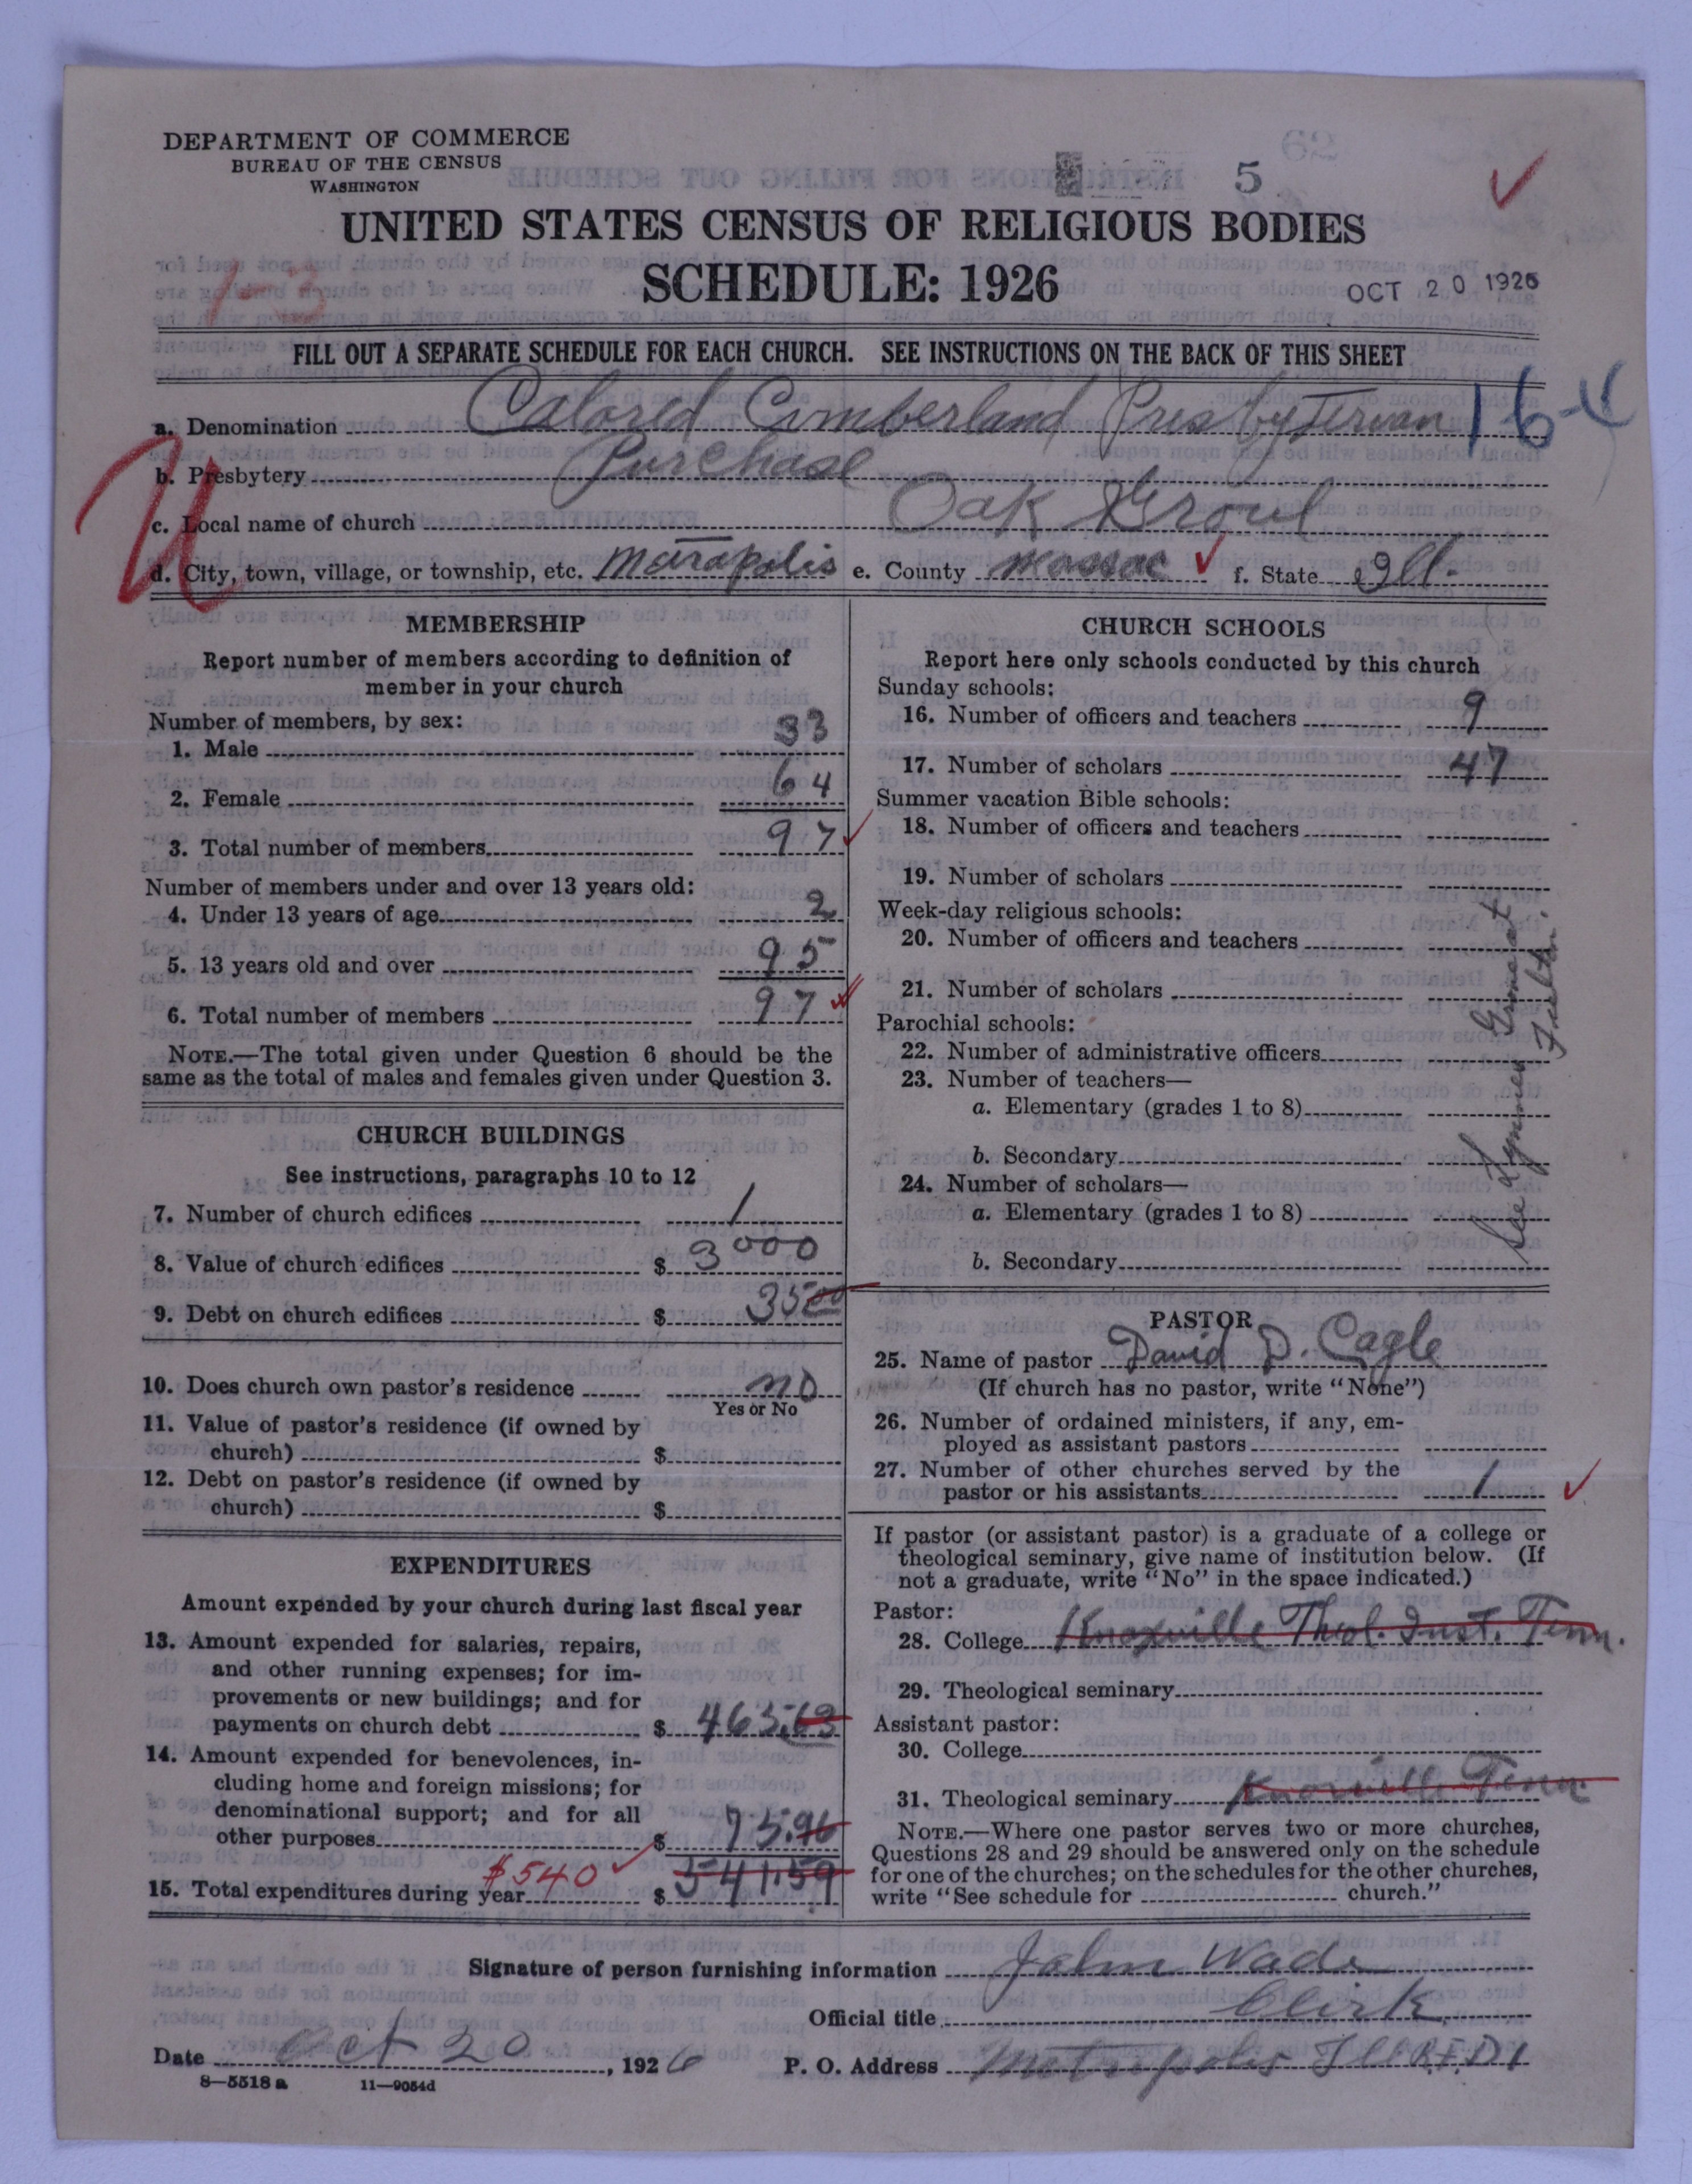 DEPARTMENT OF COMMERCE
BUREAU OF THE CENSUS
WASHINGTON
5
UNITED STATES CENSUS OF RELIGIOUS BODIES
1-3
SCHEDULE: 1926
OCT 20 1926
FILL OUT A SEPARATE SCHEDULE FOR EACH CHURCH. SEE INSTRUCTIONS ON THE BACK OF THIS SHEET
a. Denomination Colored Cumberland Presbyterian 16-4
b. Presbytery Purchase
c. Local name of church Oak Grove
U
d. City, town, village, or township, etc. Metrapolis e. County Massac f. State Ill.
MEMBERSHIP
Report number of members according to definition of
member in your church
Number of members, by sex:
1. Male 33
2. Female 64
3. Total number of members 97
Number of members under and over 13 years old:
4. Under 13 years of age 2
5. 13 years old and over 95
6. Total number of members 97
NOTE.—The total given under Question 6 should be the
same as the total of males and females given under Question 3.
CHURCH BUILDINGS
See instructions, paragraphs 10 to 12
7. Number of church edifices 1
8. Value of church edifices $ 3000
9. Debt on church edifices $ 3500
10. Does church own pastor's residence no
Yes or No
11. Value of pastor's residence (if owned by
church) $
12. Debt on pastor's residence (if owned by
church) $
EXPENDITURES
Amount expended by your church during last fiscal year
13. Amount expended for salaries, repairs,
and other running expenses; for im-
provements or new buildings; and for
payments on church debt $ 465.63
14. Amount expended for benevolences, in-
cluding home and foreign missions; for
denominational support; and for all
other purposes $ 75.96
$540
15. Total expenditures during year $ 541.59
CHURCH SCHOOLS
Report here only schools conducted by this church
Sunday schools:
16. Number of officers and teachers 9
17. Number of scholars 47
Summer vacation Bible schools:
18. Number of officers and teachers
19. Number of scholars
Week-day religious schools:
20. Number of officers and teachers
21. Number of scholars
Parochial schools:
22. Number of administrative officers
23. Number of teachers—
a. Elementary (grades 1 to 8)
b. Secondary
24. Number of scholars—
a. Elementary (grades 1 to 8)
b. Secondary
See
Fulton.
PASTOR
25. Name of pastor David D. Cagle
(If church has no pastor, write "None")
26. Number of ordained ministers, if any, em-
ployed as assistant pastors
27. Number of other churches served by the
pastor or his assistants 1
If pastor (or assistant pastor) is a graduate of a college or
theological seminary, give name of institution below. (If
not a graduate, write "No" in the space indicated.)
Pastor:
28. College Knoxville Theol. Inst. Tenn.
29. Theological seminary
Assistant pastor:
30. College
31. Theological seminary Knoxville Tenn
NOTE.—Where one pastor serves two or more churches,
Questions 28 and 29 should be answered only on the schedule
for one of the churches; on the schedules for the other churches,
write "See schedule for church."
Signature of person furnishing information John Wade
Official title Clirk
Date Oct 20, 1926 P. O. Address Metropolis Ill R.F.D 1
8—5518 a 11—9054d